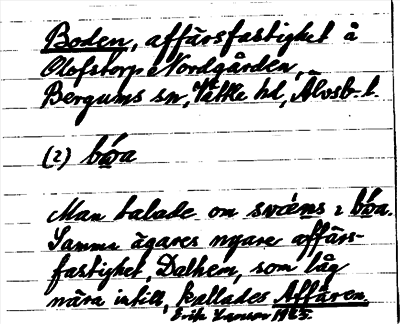 Boden, affärsfastighet å
Olofstorp Nordgården,
Bergums sn, Vättle hd, Älvsb. l.
(2) bóa
Man talade om svéns 2 bóa.
Samma ägares nyare affärs-
fastighet, Dalhem, som låg
nära intill, kallades Affären.
Erik 1925.